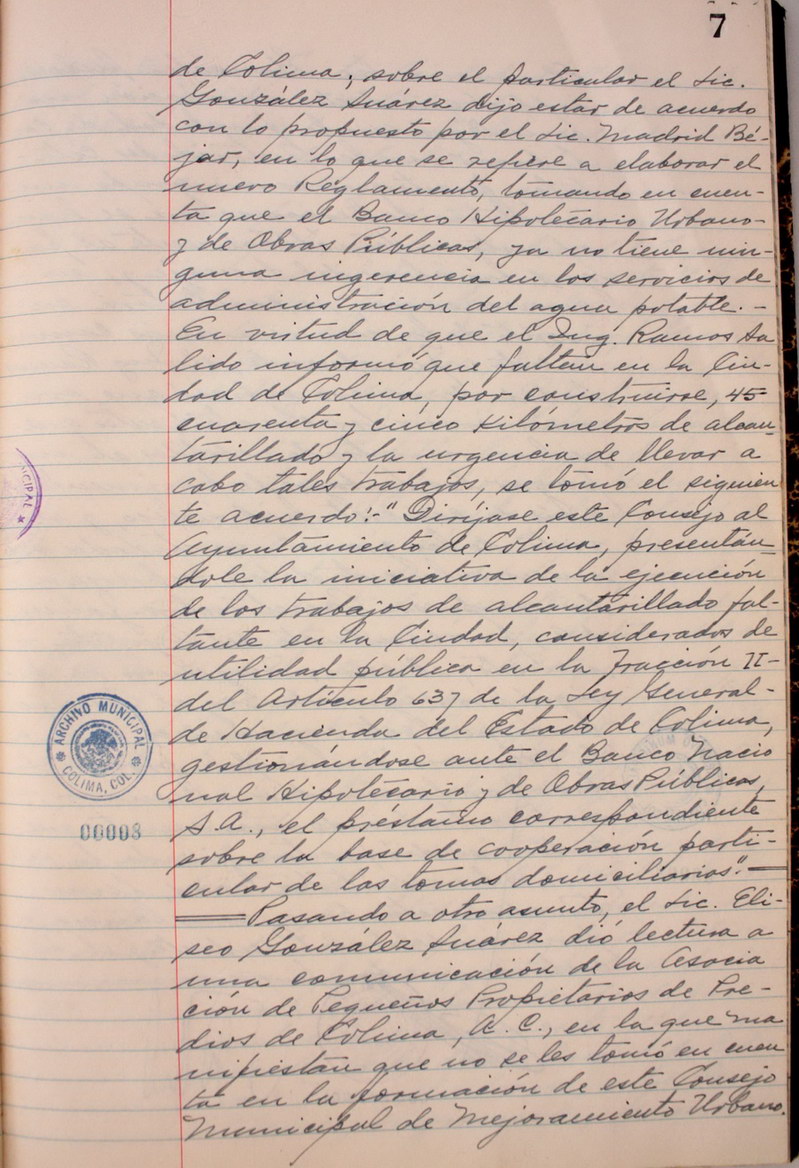 7
de Colima; sobre el particular el Lic.
González Suárez dijo estar de acuerdo
con lo propuesto por el Lic. Madrid Bé-
jar, en lo que se refiere a elaborar el
nuevo Reglamento, tomando en cuen-
ta que el Banco Hipotecario Urbano-
y de Obras Públicas, ya no tiene nin-
guna ingerencia en los servicios de
administración del agua potable.-
En virtud de que el Ing. Ramos Sa
lido informó que faltan en la Ciu-
dad de Colima, por construirse, 45
cuarenta y cinco kilómetros de alcan-
tarillado y la urgencia de llevar a
cabo tales trabajos, se tomó el siguien
te acuerdo:-"Diríjase este Consejo al
Ayuntamiento de Colima, presentán-
dole la iniciativa de la ejecución
de los trabajos de alcantarillado fal-
tante en la Ciudad, considerados de
utilidad pública en la fracción II-
del Artículo 637 de la Ley General-
de Hacienda del Estado de Colima,
gestionándose ante el Banco Nacio
nal Hipotecario y de Obras Públicas,
S.A., el préstamo correspondiente
sobre la base de cooperación parti-
cular de las tomas domiciliarias".-
Pasando a otro asunto, el Lic. Eli-
seo González Suárez dió lectura a
una comunicación de la Asocia
ción de Pequeños Propietarios de Pre-
dios de Colima, A. C., en la que ma
nifiestan que no se les tomó en cuen
ta en la formación de este Consejo
Municipal de Mejoramiento Urbano.
NCIPAL
ARCHIVO MUNICIPAL
COLIMA, COL.
00008